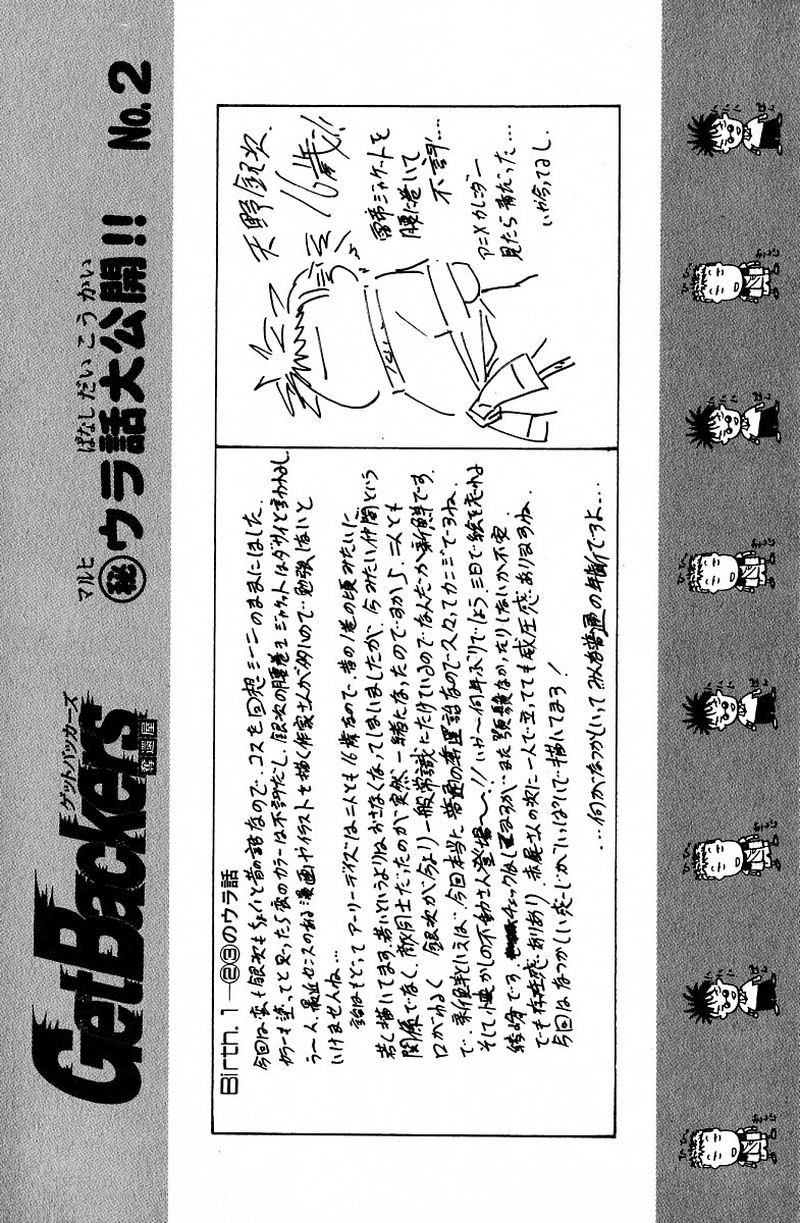 GetBackers
ゲットバッカーズ
奪還屋
マルヒ ばなし だい こう かい
㊙ウラ話大公開!! No.2
Birth.1―②③のウラ話
今回は蛮も銀次もちょいと昔の話なので、コスを回想シーンのままにしました。
カラーも塗ってと思ったら蛮のカラーは不評だし、銀次の腰巻きジャケットはダサイと言われるし
う〜ん、最近センスのある漫画やイラストを描く作家さんが多いので勉強しないと
いけませんね…
話はもどって アーリーデイズは二人とも16歳なので、昔の1巻の頃みたいに
若く描いてます。若いというよりはおさなくなってしまいましたが、今みたい仲間という
関係でなく、敵同士だったのが突然一緒になったのですから、二人とも
口がわるく、銀次が今より一般常識にたけているのでなんだか新鮮です。
で、蛮銀次といえば、今回本当に普通の奪還話なので久々ってカンジですね。
そして懐かしの不動さん登場〜!!いや〜何年ぶりでしょう、三日で絵を忘れる
結時です。チェックはしてますが、まだ類類なかったりしないか不安
でも存在感ありあり、赤屍さんの次に一人で立ってても威圧感ありますね。
今回はなつかしい感じがいっぱいで描いてます!
…何かなつかしいってみんな普通の年齢ですよ…
天野銀次
16歳!!
雷帝ジャケットを
腰に巻いて
不評…
アニメカレンダー
見たら青だった…